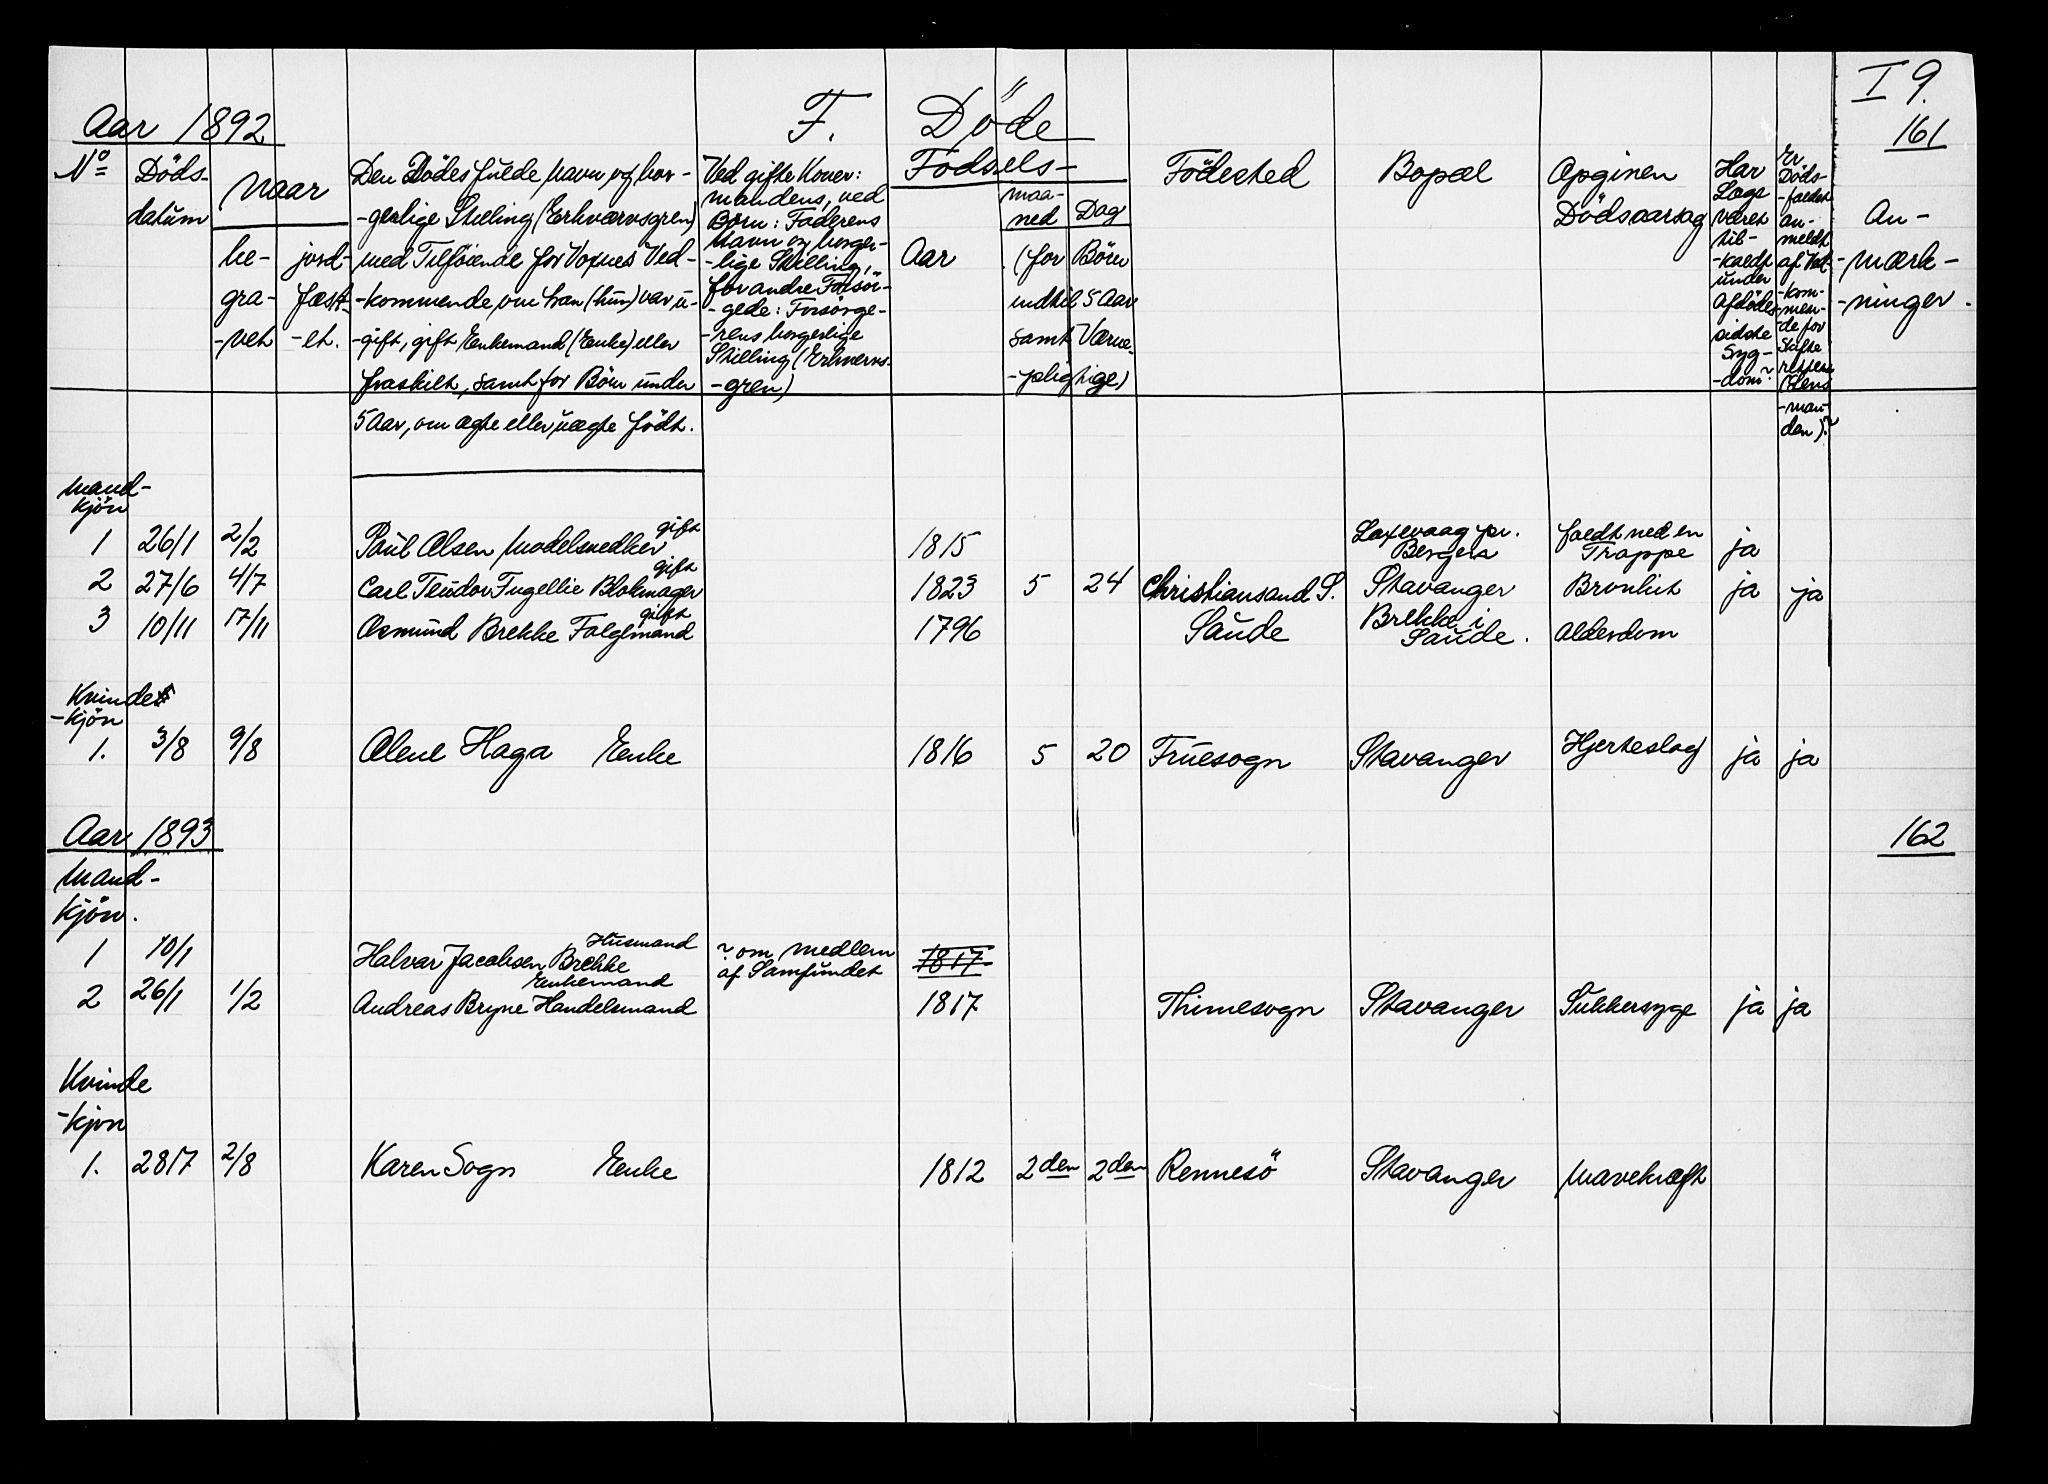 I 9.
Aar 1892 F. Döde 161
No Döds-datum Naar be-gra-vet jord-fæst-et.
Den Dödes fulde Navn og bor-
-gerlige Stilling (Erhværvsgren)
med Tilföiende for Voxnes Ved-
-kommende, om han (hun) var u-
-gift, gift Enkemand (Enke) eller
fraskilt, samt for Börn under
5 Aar, om ægte eller uægte födt.
Ved gifte Koner:
Mandens, ved
Börn: Faderens
Navn og borger-
-lige Stilling,
for andre Forsör-
-gede: Forsörge-
-rens borgerlige
Stilling (Erhvervs-
-gren)
Födsels-
Aar
Maa-
ned Dag
(for Börn
indtil 5 Aar
samt Værne-
-pligtige)
Födested
Bopæl
Opgiven
Dödsaarsag
Har
Læge
været
til-
-kaldt
under
Afdödes
sidste
Syg-
-dom?
Er
Döds-
-faldet
an-
meldt
af Ved-
-kom-
-men-
-de for
Skifte
retten
(Lens
-man-
den)?
An-
-mærk-
-ninger.
Mand-
kjön
1 26/1 2/2 Paul Olsen Modelsnedker gift 1815 Laxevaag pr. Bergen faldt ned en Trappe ja
2 27/6 4/7 Carl Teodor Fugellie Blokmager gift 1823 5 24 Christiansand S. Stavanger Bronkit ja ja
3 10/11 17/11 Osmund Brekke Folgemand gift 1796 Saude Brekke i Saude. Alderdom
Kvinde
-kjön
1. 3/8 9/8 Olene Haga Enke 1816 5 20 Fruesogn Stavanger Hjerteslag ja ja
Aar 1893 162
Mand-
kjön.
1 10/1 Halvar Jacobsen Brekke Husmand ? om Medlem af Samfundet 1817
2 26/1 1/2 Andreas Bryne Handelsmand Enkemand 1817 Thimesogn Stavanger Sukkersyge ja ja
Kvinde
-kjön
1. 28/7 2/8 Karen Sogn Enke 1812 2den 2den Rennesö Stavanger Mavekræft